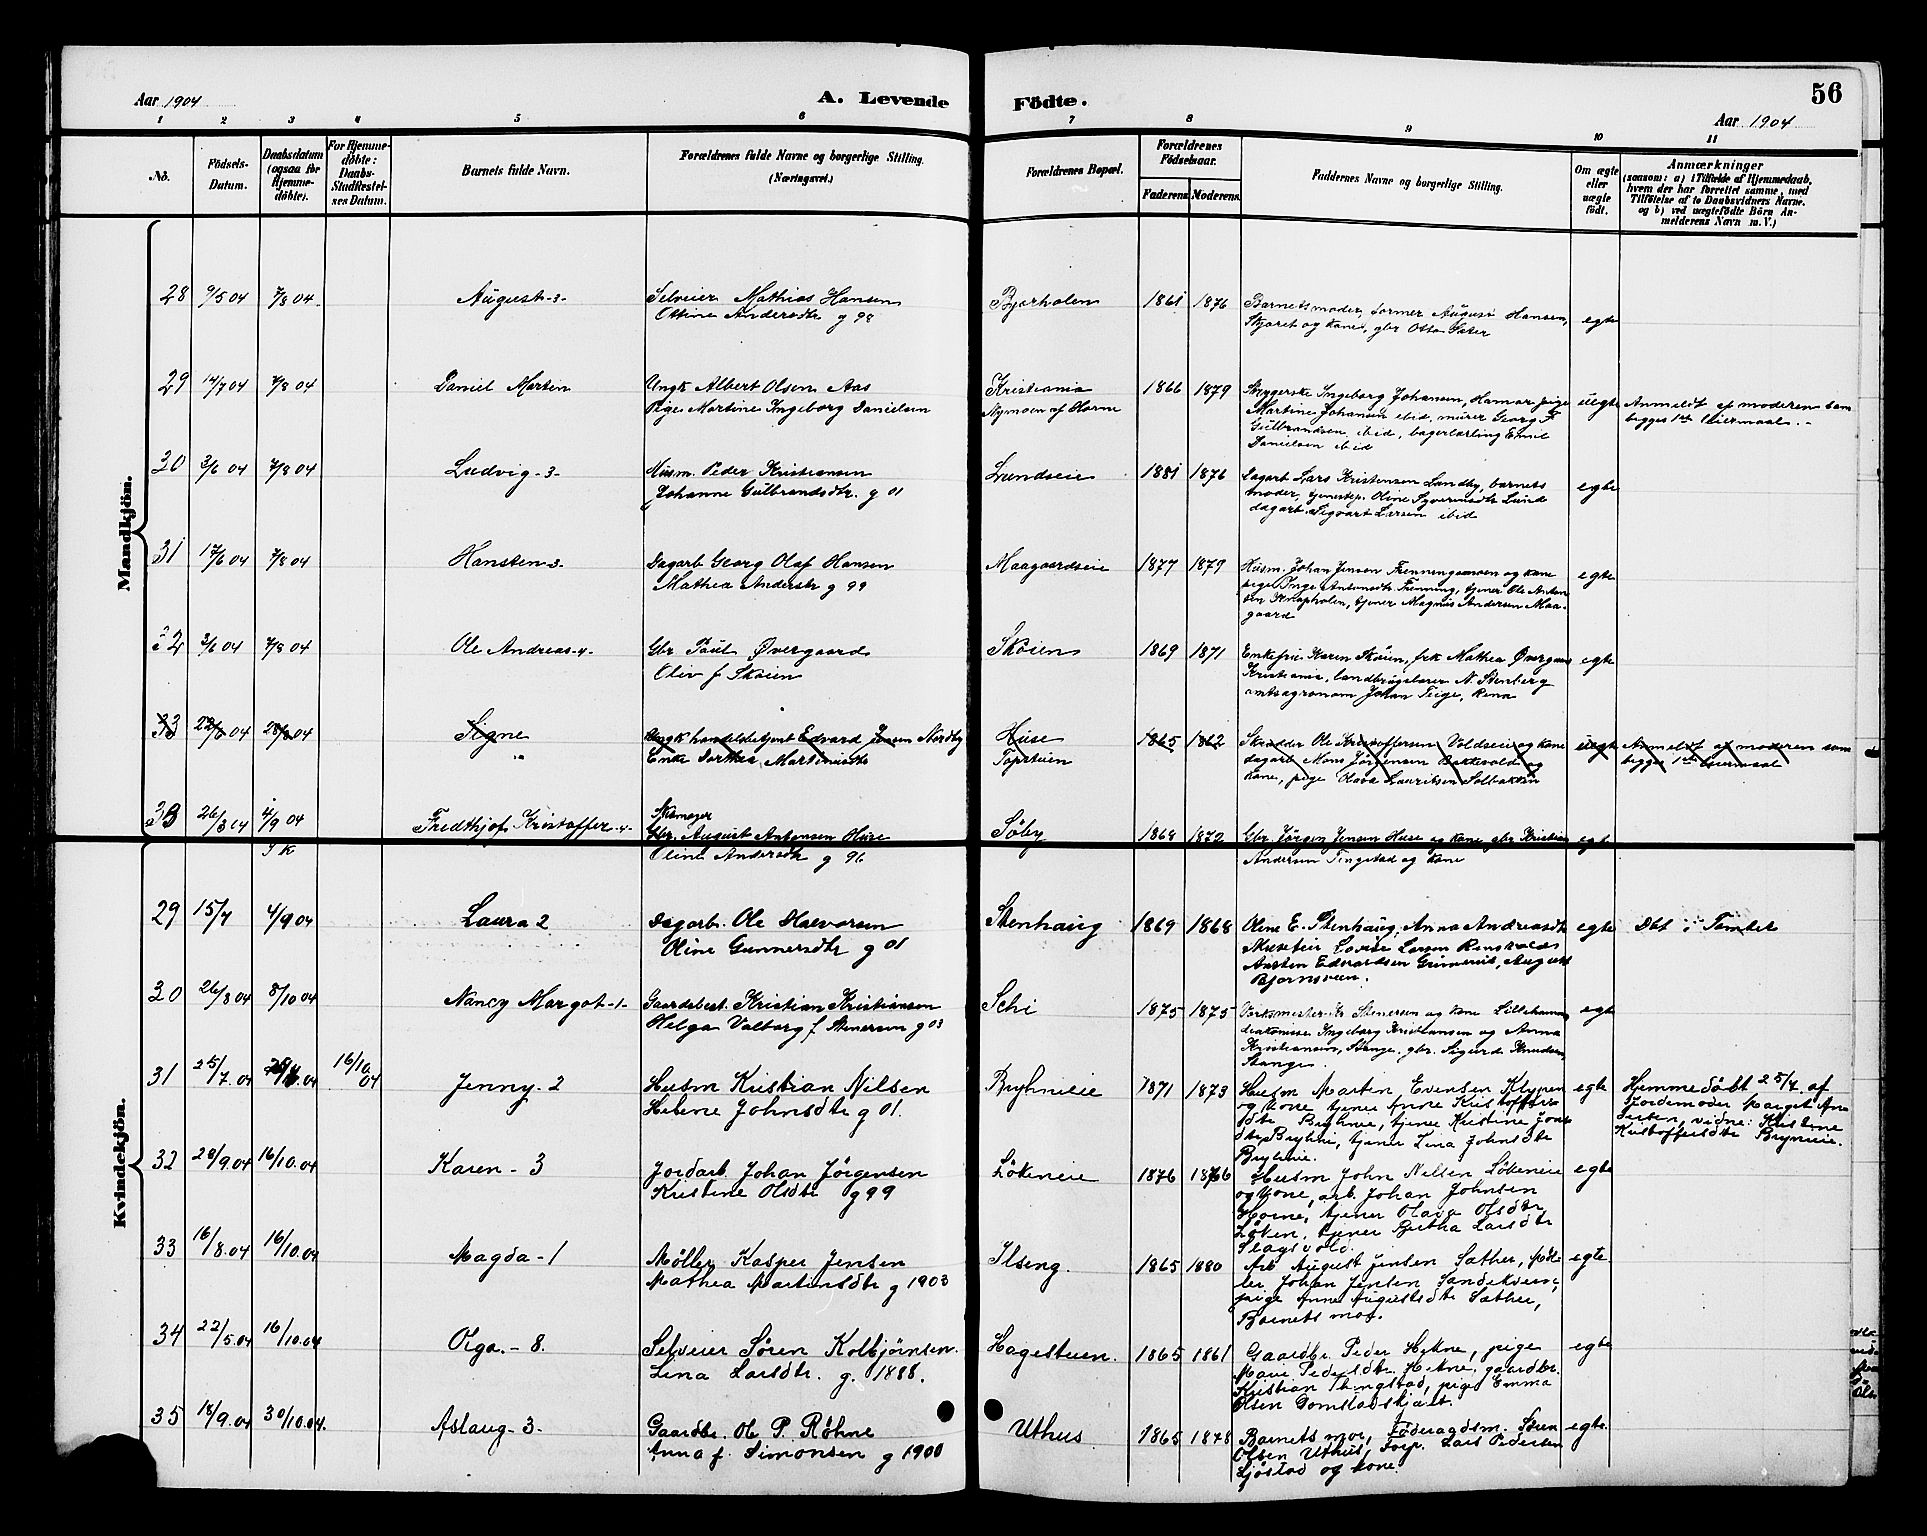 Aar 1904
A. Levende
Födte.
56
Aar 1904
1 2 3 4 5 6 7 8 9 10 11
No.
Födsels-Datum.
Daabsdatum (ogsaa for Hjemmedöbte).
For Hjemmedöbte: Daabs-Stadfestelses Datum.
Barnets fulde Navn.
Forældrenes fulde Navne og borgerlige Stilling. (Næringsvei.)
Forældrenes Bopæl.
Forældrenes Födselsaar.
Faderens Moderens
Faddernes Navne og borgerlige Stilling.
Om ægte eller uægte födt.
Anmærkninger
(saasom: a) i Tilfælde af Hjemmedaab, hvem der har forrettet samme, med Tilföielse af to Daabsvidners Navne. og b) ved uægtefödte Börn Anmelderens Navn m. V.)
Mandkjön.
28 9/5 04 7/8 04 August -3- Selveier Mathias Hansen Bjørholen 1861 1876 Barnets moder, August Hansen,
Ottine Andersdtr g 98 Skjøret og kone, gbr Otto egte
29 14/7 04 7/8 04 Daniel Martin Ungk Albert Olsen Aas Kristiania 1866 1879 Ingeborg Johansen, Hamar, pige uegte Anmeldt af moderen som
Pige Martine Ingeborg Danielsen Nymoen af Horne Martine Johansen ibid, murer Georg F begges 1ste leiermaal.
Gulbrandsen, ibid, bagerlærling Emil
Danielsen ibid
30 3/6 04 7/8 04 Ludvig -3- Husm. Peder Kristiansen Lundseie 1881 1876 Dagarb Lars Kristensen Lundby, barnets
Johanne Gulbrandsdtr. g 01 moder, tjenestep. Oline Syversdtr Lund egte
dagarb. Sigvart Larsen ibid
31 17/6 04 7/8 04 Hansten -3- Dagarb Georg Olaf Hansen Maagaardseie 1877 1879 Husm. Johan Jensen Frenningsmoen og kone
Mathea Anderstr g 99 pige Inga Antonsdtr Frenning, tjener Ole Anton egte
sen Knapholen, tjener Magnus Andersen Maa-
gaard
32 3/6 04 7/8 04 Ole Andreas -4- Gbr Paul Øvergaard Skøien 1869 1871 Enkefru Karen Skøien, frk Mathea Øvergaard egte
Oliv f Skøien Kristiania, landbrugslærer N. Stenberg
amtsagronom Johan Teige, Rena
33 22/6 04 28/8 04 Signe Ungk handelsbetjent Edvard Jensen Nordby Huse 1865 1862 Skrædder Ole Kristoffersen Voldseie og kone uegte Anmeldt af moderen som
Enke Dorthea Martinusdtr Topstuen dagarb Mons Jørgensen Bakkevold og begges 1ste leiermaal
kone, pige Olava Lauritsen Solbakken
33 26/3 04 4/9 04 Fredthjof Kristoffer -4- Gbr. August Antonsen Huse Søby 1868 1872 Gbr Jørgen Jensen Huse og kone gbr Kristian egte
Oline Andersdtr g 96 Andersen Tingstad og kone
Kvindekjön.
29 15/7 4/9 04 Laura 2 Dagarb. Ole Halvorsen Stenhaug 1869 1868 Oline E. Stenhaug, Anna Andreasdtr egte Døbt i Tomter
Oline Gunnersdtr g 01 Lovise Larsen
Edvardsen Grimerud, August
Bjørnsveen.
30 26/8 04 8/10 04 Nancy Margot -1- Gaardsbest. Kristian Kristiansen Schi 1875 1875 Verksmester Kr Stenersen og kone Lillehammer egte
Helga Valborg f Stenersen g 03 diakonisse Ingeborg Kristiansen og Anna
Kristiansen, Stange, gbr. Sigurd Knudsen
Stange.
31 25/7.04 16/10 04 Jenny -2 Husm Kristian Nilsen Bryhnieie 1871 1873 Husm Martin Evensen Klypen egte Hjemmedöbt 25/7. af
Helene Johnsdtr g 01. og kone, tjener Anne Kristoffers Jordemoder Marget An
dtr Bryhnie, tjener Kristine dersen, vidne: Kristine
Bryhnie, tjener Lina Johnsdtr Kristoffersdtr Brynieie.
Bryhnie.
32 28/9.04 16/10.04 Karen - 3 Jordarb. Johan Jörgensen Lökeneie 1876 1876 Husm John Nilsen Lökeneie egte
Kristine Olsdtr g 99 og kone, arb. Johan Johnsen
Horne, tjener Olava Olsdtr
Löken, tjener Bertha Larsdtr
Slagsvold.
33 16/8.04 16/10.04 Magda - 1 Møller Kasper Jensen Ilseng. 1865 1880 Arb August Jensen Sæther, Møl- egte.
Mathea Martinsdtr g 1903 ler Johan Jensen Sandekvern,
pige Anne Augustsdtr Sæther,
Barnets mor.
34 22/5.04 16/10.04 Olga. - 8. Selveier Søren Kolbjørnsen. Hagestuen. 1865 1861 Gaardbr. Peder Hekne, pige egte
Lina Larsdtr. g. 1888. Marie Pedersdtr. Hekne, gaardbr.
Kristian Thingstad, pige Emma
Olsen Domstadskjæt.
35 18/9.04 30/10.04. Aslaug -3- Gaardbr. Ole P. Røhne Uthus 1865 1878 Barnets mor, Föderaadsm. Steen egte.
Anna f. Simonsen g 1900 Olsen Uthus, Forp. Lars Pedersen
Sjöstad og kone.